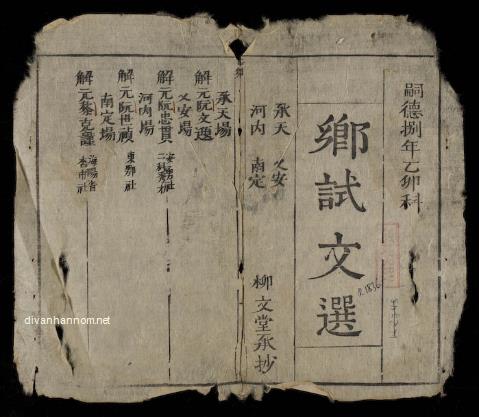 嗣德捌年乙卯科
鄉試文選
承天 乂安
河内 南定
柳文堂承抄
承天場
解元阮文逸
乂安場
解元阮忠貫
河内場
解元阮世禎 東鄂社
南定場
解元蔡克謹
R.1836
divanhannom.net